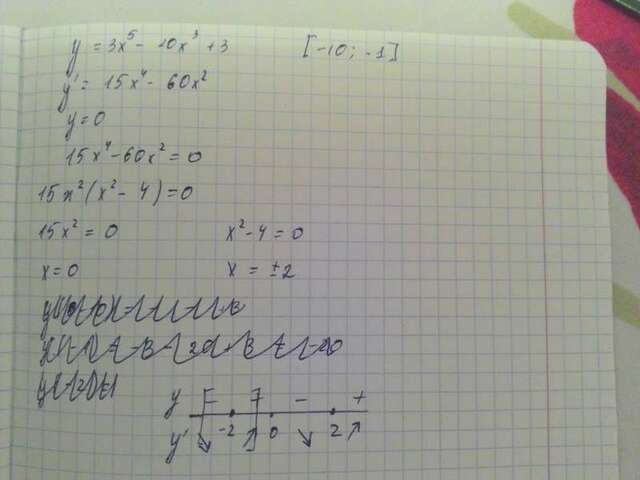 y = 3x⁵ - 20x³ + 3 [-10; -1]
y' = 15x⁴ - 60x²
y = 0
15x⁴ - 60x² = 0
15x²(x² - 4) = 0
15x² = 0 x² - 4 = 0
x = 0 x = ±2
y - +
-2 0 2
y' ↘ ↗ ↘ ↗